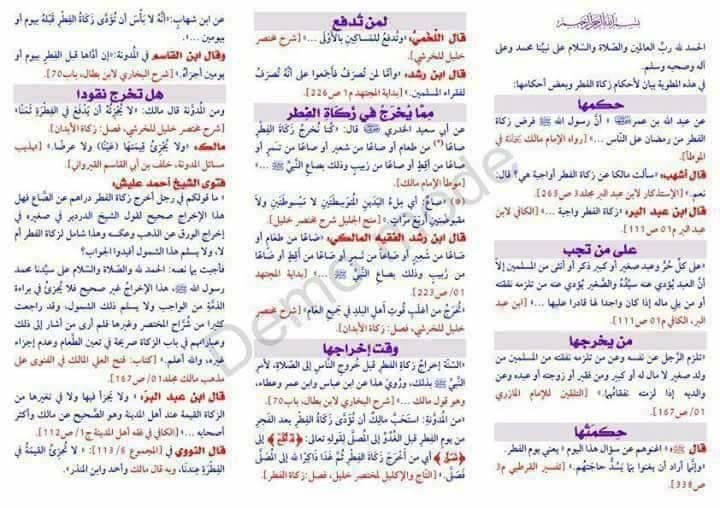 بسم الله الرحمن الرحيم
الحمد لله ربّ العالمين والصّلاة والسّلام على نبيّنا محمد وعلى
آله وصحبه وسلم.
في هذه المطوية بيان لأحكام زكاة الفطر وبعض أحكامها:
حكمها
عن عبد الله بن عمر «أنّ رسول الله ﷺ فرض زكاة
الفطر من رمضان على النّاس ...» [رواه الإمام مالك في
الموطأ].
قال أشهب: «سألت مالكا عن زكاة الفطر أواجبة هي؟ قال:
نعم.» [الإستذكار لابن عبد البر مجلد3 ص263].
قال ابن عبد البر: «زكاة الفطر واجبة ...» [الكافي لابن
عبد البر م01 ص111]
على من تجب
«على كلّ حُرّ وعبد صغير أو كبير ذكر أو أنثى من المسلمين إلاّ
أنّ العبد يؤدي عنه سيّدُه والصّغير يؤدي عنه من تلزمه نفقته
أو من يلي ماله إذا كان واجدا لها قادرا عليها ...» [ابن عبد
البر، الكافي م01 ص111].
من يخرجها
«تلزم الرّجل عن نفسه وعن من تلزمه نفقته من المسلمين من
ولد صغير لا مال له أو كبير زمن فقير أو زوجته أو عبده وعن
والديه إذا لزمته نفقاتُهم.» [التلقين للإمام المازري
01/ ص167].
حِكمَتُها
قال ﷺ: «اغنوهم عن سؤال هذا اليوم» يعني يوم الفطر.
«وإنّما أراد أن يغنوا بمَا يسُدُّ حاجتَهم.» [تفسير القرطبي م3
ص338].
لمن تُدفع
قال اللّخميّ: «وتُدفعُ للمَسَاكين بالأَولَى ...» [شرح مختصر
خليل للخرشي].
قال ابن رشد: «وأمّا لمن تُصرَف فأجمَعوا على أنّهُ تُصرَف
لفقراء المسلمين.» [بداية المجتهد م1 ص226].
ممّا يُخرَجُ في زكَاة الفِطر
عن أبي سعيد الخدري قال: «كُنّا نُخرِجُ زكَاة الفِطر
صاعًا (*) من طعام أو صَاعًا من شعير أو صاعًا من تمر أو
صاعًا من أقِطٍ أو صَاعًا من زبيب وذلك بصاع النّبيّ ﷺ»
[موطأ الإمام مالك].
(*) «صاعٌ: أي ملءُ اليَدَين المُتَوسِطَتين لا مَبسُوطَتَين ولاَ
مقبوضَتين أربعُ مرّاتٍ.» [منح الجليل شرح مختصر خليل].
قال ابن رشد الفقيه المالكي: «صَاعًا من طعَام أو
صَاعًا من شعير أو صَاعًا من تمر أو صَاعًا من أقِط أو صَاعًا
من زبيب وذلك بصَاع النّبيّ ﷺ ...» [بداية المجتهد
01/ ص223]
«تُخرَجُ من أغلَب قُوتِ أهل البلد في جَميع العَام» [شرح مختصر
خليل للخرشي، فصل: زكاة الأبدان].
وقت إخراجها
«السّنّة إخراجُ زكاة الفِطر قبل خُروجِ النّاس إلى الصّلاةِ، لأمر
النّبيّ ﷺ بذلك، ورُويَ هذا عن ابن عباس وابن عمر وعطاء،
وهو قول مالك ...» [شرح البخاري لابن بطال، باب70].
«من المُدوّنَة: استحَبّ مالكٌ أن تُؤدّى زكاةُ الفِطر بعدَ الفَجرِ
من يوم الفِطر قبل الغُدُوّ إلى المُصلّى لقوله تعالى: ﴿قد أفلح من تزكى
وذكر اسم ربه فصلى﴾ أي من أخرجَ زكاةَ الفِطر ثُمّ غدَا ذَاكِرًا لله إلى المُصَلَّى
فصَلّى.» [التّاج والإكليل لمختصر خليل، فصل:زكاة الفطر].
عن ابن شهابٍ:«أنّهُ لا بَأسَ أن تُؤدّى زكَاةُ الفِطرِ قبلَهُ بيوم أو
بيومين ...»
وقال ابن القاسم في المُدونة:«إن أدّاها قبل الفِطرِ بيوم أو
يومين أجزَأَه.» [شرح البخاري لابن بطال، باب70].
هل تخرج نقودا
ومن المُدوّنة قال مالك: «لا يُجزئُهُ أن يدفَعَ في الفِطرَة ثَمَنًا»
[شرح مختصر خليل للخرشي، فصل: زكاة الأبدان]
مالك: «ولا يُجزئُ قِيمَتَهَا (عَينًا) ولا عرضًا.» [تهذيب
مسائل المدونة، خلف بن أبي القاسم القيرواني].
فتوى الشيخ أحمد عليش:
« ما قولكم في رجل أخرج زكاة الفطر دراهم عن الصّاع فهل
هذا الإخراج صحيح لقول الشيخ الدردير في صغيره في
إخراج الورق عن الذهب وعكسه وهذا شامل لزكاة الفطر أم
لا، ولا يسلم هذا الشمول أفيدوا الجواب؟
فأجبت بما نصه: الحمد لله والصّلاة والسّلام على سيّدنا محمد
رسول الله ﷺ، هذا الإخراج غير صحيح فلا يجزئ في براءة
الذمّة من الواجب ولا يسلم ذلك الشمول، وقد راجعت
كثيرا من شُرّاح المختصر وغيرها فلم أرى من أشار إلى ذلك
وعباراتهم في باب الزكاة صريحة في تعين الطّعام وعدم إجزاء
غيره، والله أعلم.» [كتاب: فتح العلي المالك في الفتوى على
مذهب مالك مجلد01/ ص167].
قال ابن عبد البرّ: « ولا يُجزأ فيها ولا في غيرها من
الزكاة القيمة عند أهل المدينة وهو الصّحيح عن مالك وأكثر
أصحابه ...» [الكافي في فقه أهل المدينة ج1/ ص112].
قال النّووي في [المجموع 6/ 113]: « لا تُجزئُ القيمَةُ في
الفِطرَةِ عِندَنَا، وبه قال مالك وأحمد وابن المنذر».
Demo Mode